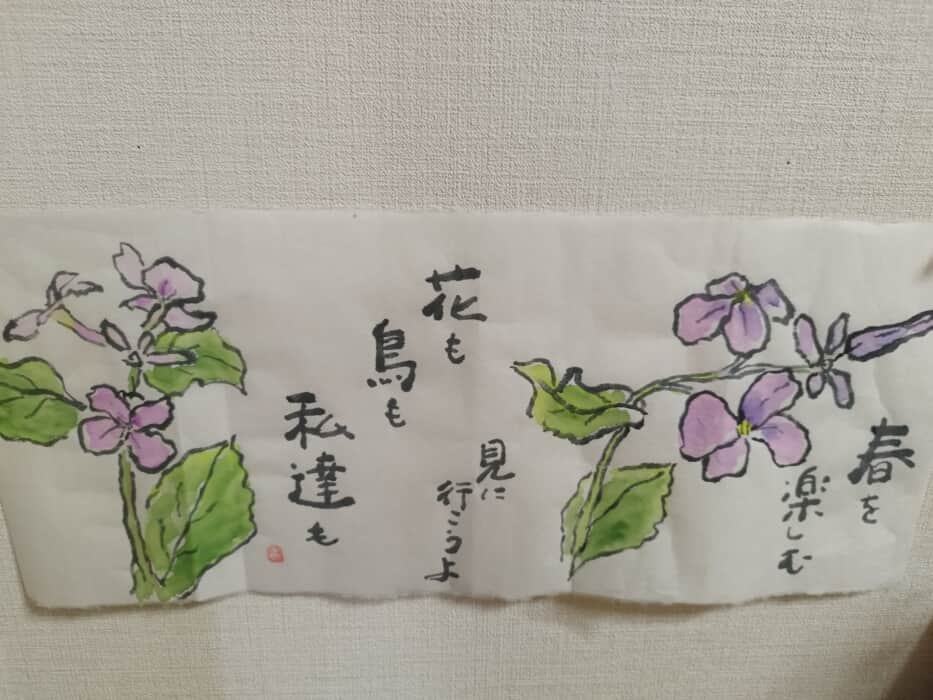 春を
楽しむ
見に
行こうよ
花も
鳥も
私達も